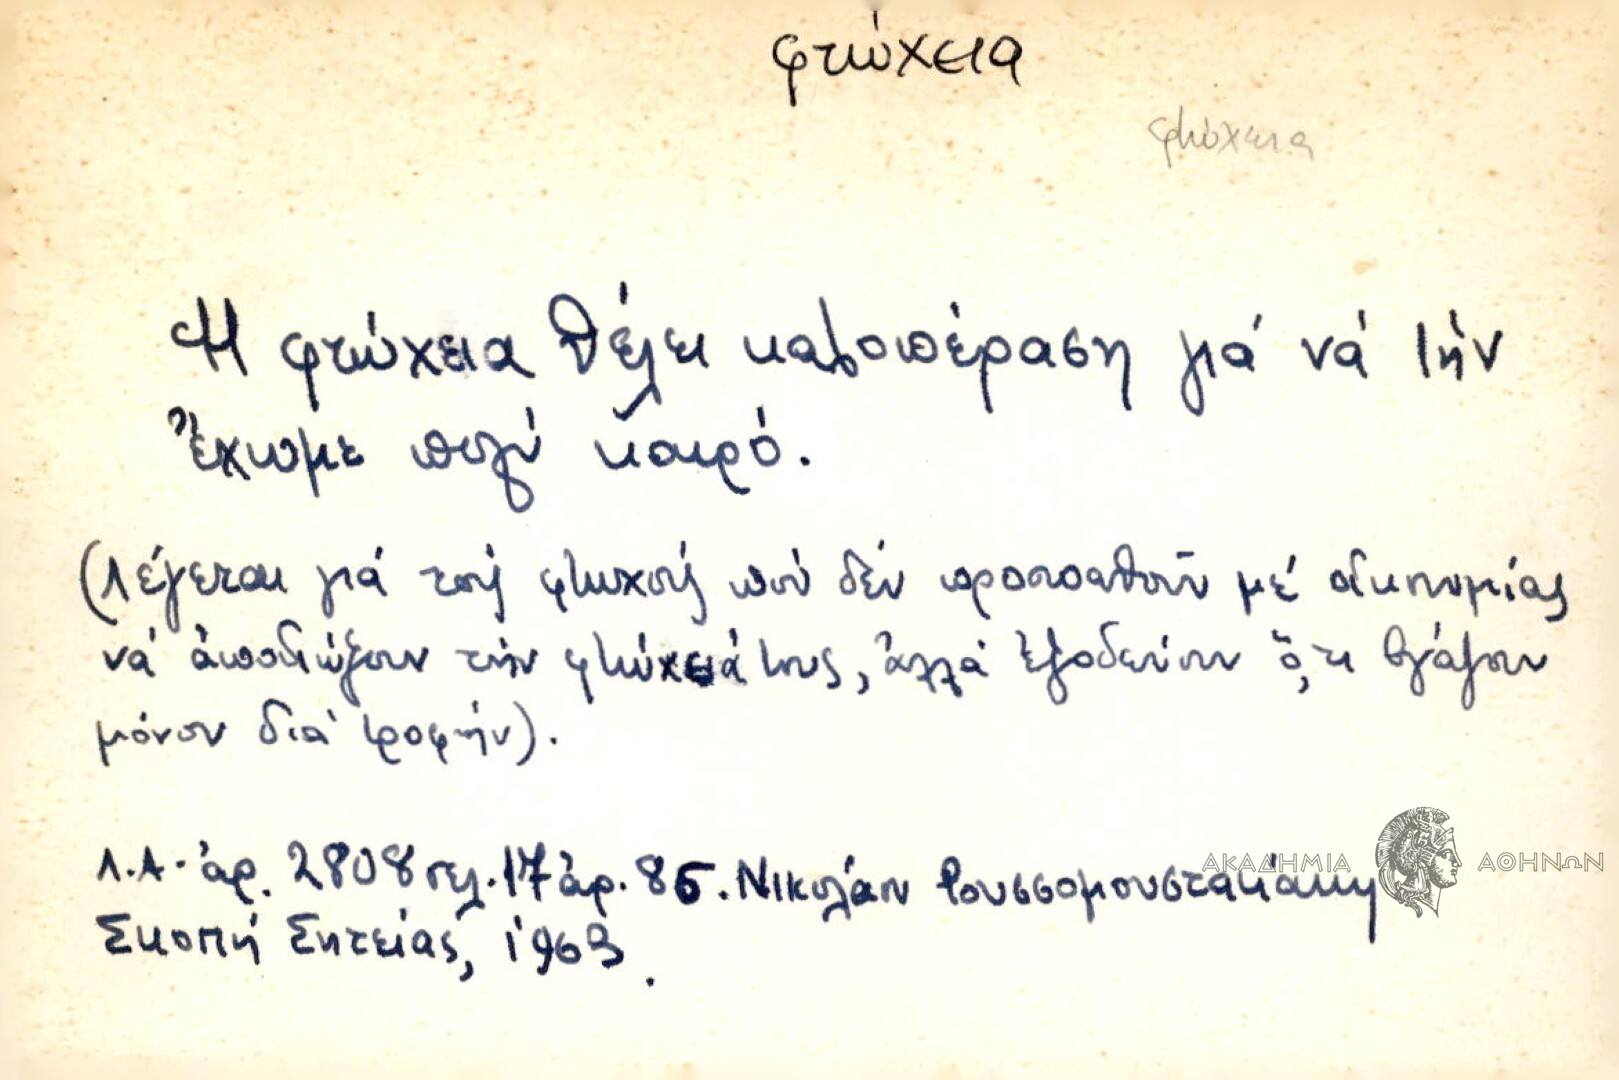 φτώχεια
φτώχεια
Ἡ φτώχεια θέλει καλοπέραση γιά νά τήν
ἔχωμε πολύ καιρό.
(Λέγεται γιά τούς φτωχούς πού δέν προσπαθοῦν μέ οἰκονομίας
νά ἀποδιώξουν τήν φτώχειά τους, ἀλλά ἐξοδεύουν ὅ,τι βγάζουν
μόνον διά τροφήν).
Λ.Α. ἀρ. 2808 σελ. 17 ἀρ. 85. Νικολάου Ρουσσομουστακάκη
Σκοπή Σητείας, 1963.
ΑΚΑΔΗΜΙΑ ΑΘΗΝΩΝ